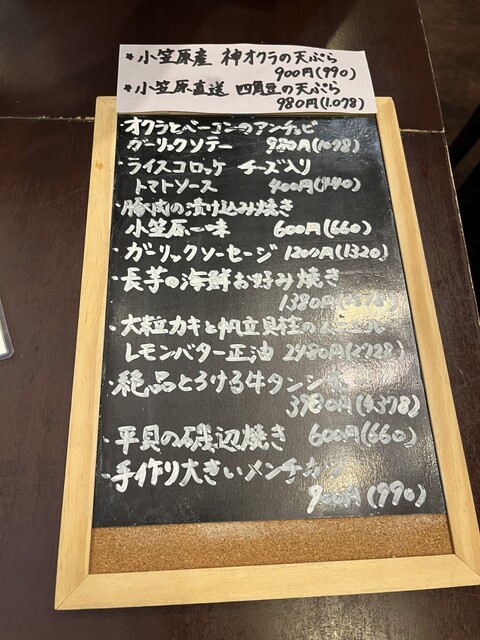 * 小笠原産 神オクラの天ぷら
900円(990)
* 小笠原直送 四角豆の天ぷら
980円(1.078)
・オクラとベーコンのアンチョビ
ガーリックソテー 980円(1078)
・ライスコロッケ チーズ入り
トマトソース 400円(440)
・豚肉の漬け込み焼き
小笠原一味 600円(660)
・ガーリックソーセージ 1200円(1320)
・長芋の海鮮お好み焼き
1380円
・大粒カキと帆立貝柱の
レモンバター正油 2480円(2728)
・絶品とろける牛タン
3980円(4378)
・平貝の磯辺焼き 600円(660)
・手作り大きいメンチカツ
900円(990)